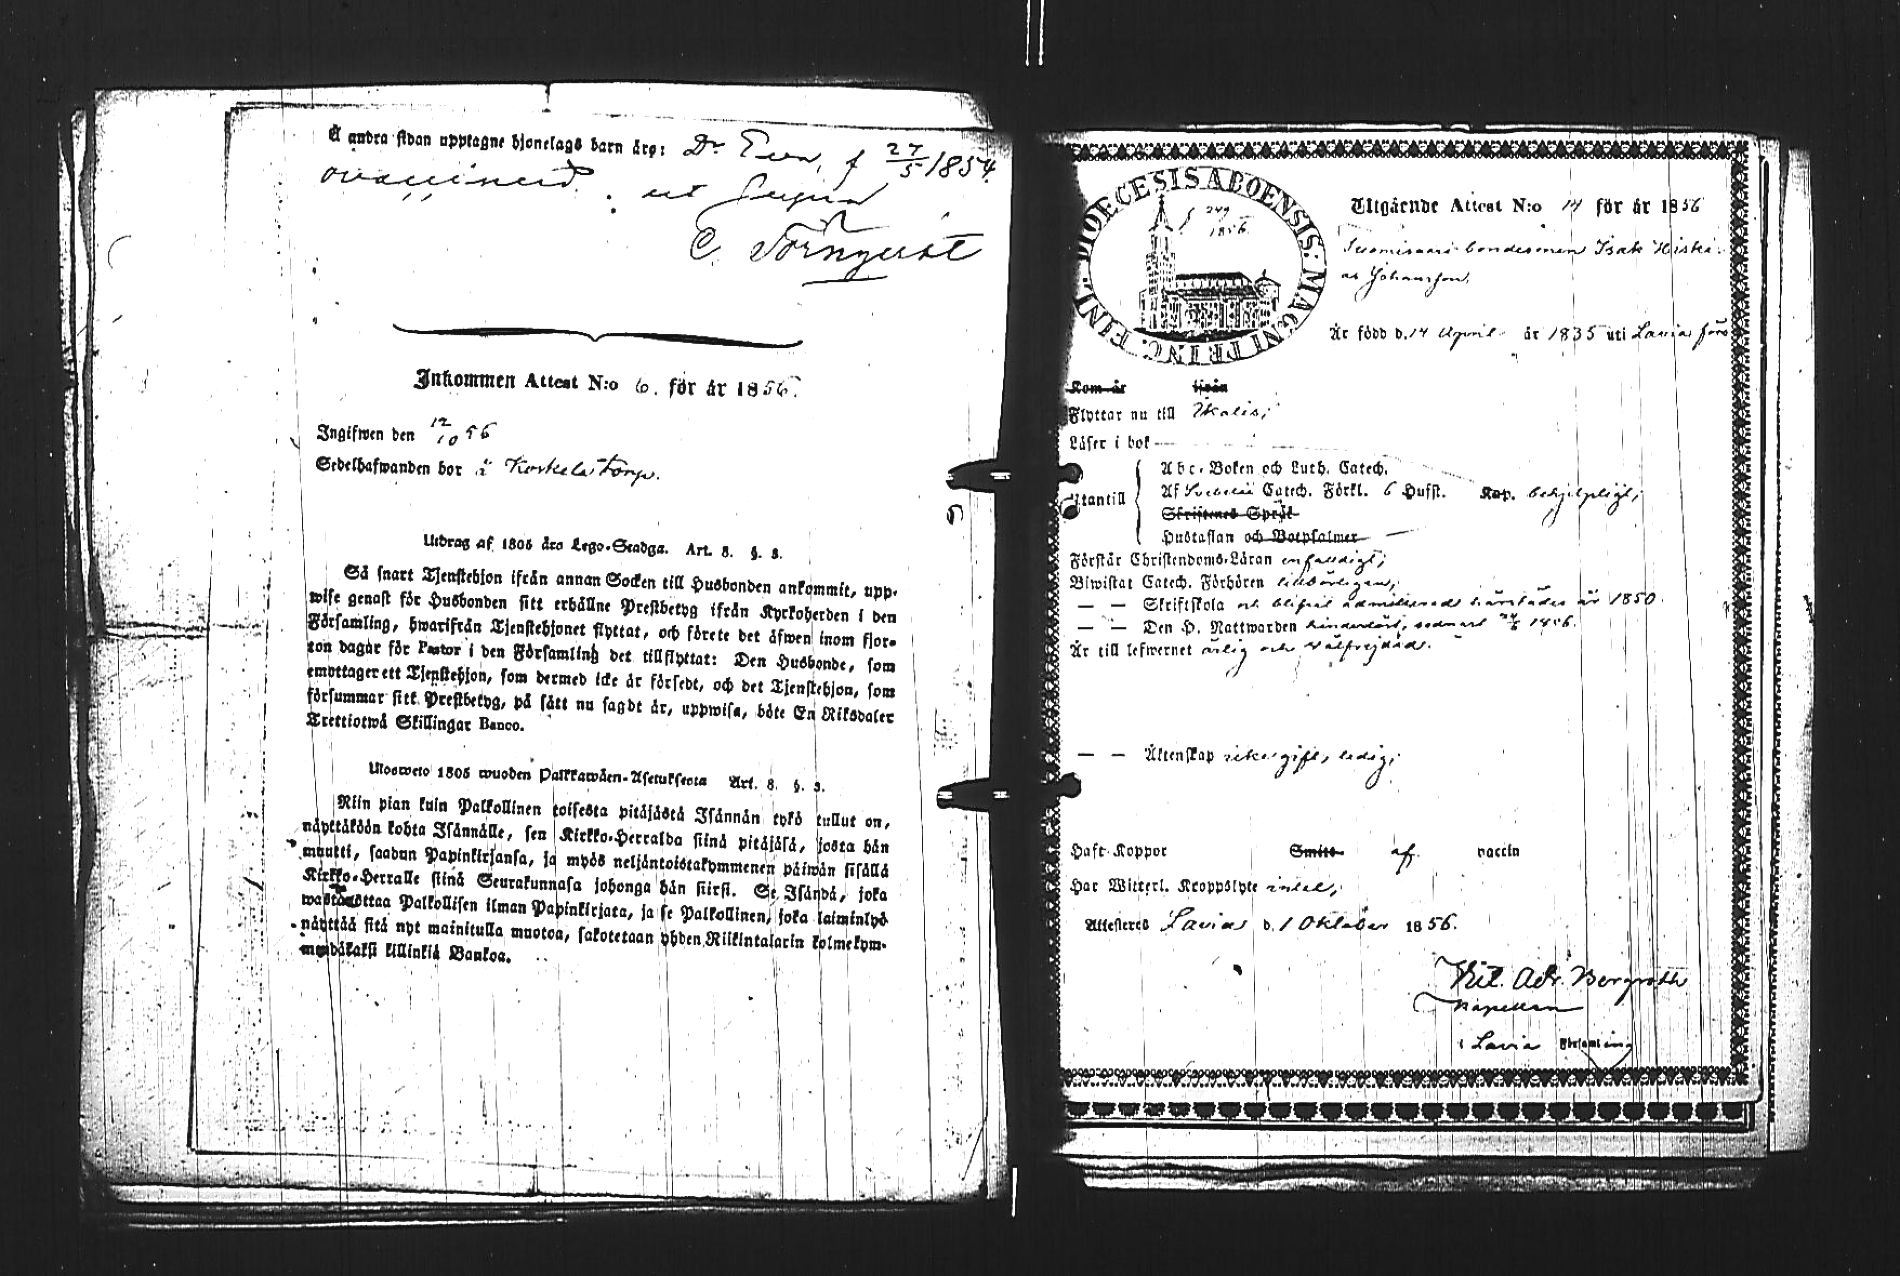 Å andra sidan upptagne hjonelags barn äro: Dr Eva, f 27/5 1854.
ovaccinerad. ut supra
C. Törnqvist
Inkommen Attest N:o 6. för år 1856.
Ingifwen den 12/10 56
Sedelhafwanden bor å Koskela torp.
Utdrag af 1805 års Lego-Stadga. Art. 8. §. 3.
Så snart Tjenstehjon ifrån annan Socken till Husbonden ankommit, upp-
wise genast för Husbonden sitt erhållne Prestbetyg ifrån Kyrkoherden i den
Församling, hwarifrån Tjenstehjonet flyttat, och förete det äfwen inom fjor-
ton dagar för Pastor i den Församling det tillflyttat: Den Husbonde, som
emottager ett Tjenstehjon, som dermed icke är försedt, och det Tjenstehjon, som
försummar sitt Prestbetyg, på sätt nu sagdt är, uppwisa, böte En Riksdaler
Trettiotwå Skillingar Banco.
Ulosweto 1805 wuoden Palkkawäen-Asetuksesta Art. 8. §. 3.
Niin pian kuin Palkollinen toisesta pitäjästä Isännän tykö tullut on,
näyttäköön kohta Isännälle, sen Kirkko-Herralda siinä pitäjäsä, josta hän
muutti, saadun Papinkirjansa, ja myös neljäntoistakymmenen päiwän sisällä
Kirkko-Herralle siinä Seurakunnasa johonga hän siirsi. Se Isändä, joka
wastaanottaa Palkollisen ilman Papinkirjata, ja se Palkollinen, joka laiminlyö
näyttää sitä nyt mainitulla muotoa, sakotetaan yhden Riikintalarin kolmekym-
mendäkaksi killinkiä Bankoa.
DIOECESIS ABOENSIS: MAGNI PRINC. FINL:
f 249
1856.
Utgående Attest N:o 14 för år 1856
bondesonen Isak Hiski-
as Johansson,
Är född d. 14 April år 1835 uti Lavia förs
Kom år ifrån
Flyttar nu till Ikalis;
Läser i bok
Utantill
Abc-Boken och Luth. Catech.
Af Svebelii Catech. Förkl. 6 Hufst. Kap. behjelpligt;
Skriftenes Språk
Hustaflan och Botpsalmer
Förstår Christendoms-Läran enfaldigt;
Biwistat Catech. Förhören
— — Skriftskola och blifvit admitterad härstädes år 1850.
— — Den H. Nattwarden hinderlöst, sednast 24/6 1856.
Är till lefwernet ärlig och välfrejdad.
— — Äktenskap icke gift, ledig;
Haft Koppor Smitt af vaccin
Har Witterl. Kroppslyte intet;
Attesteras Lavia d. 1 Oktober 1856.
Adr. Bergroth
Kapellan
i Lavia Församling